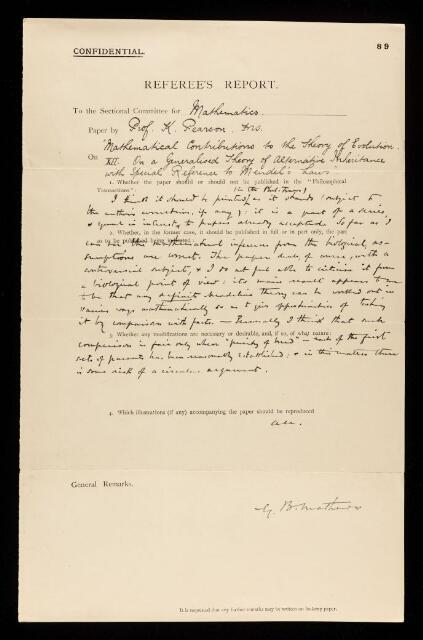 CONFIDENTIAL.
89
REFEREE'S REPORT.
To the Sectional Committee for Mathematics.
Paper by Prof. K. Pearson, FRS.
"Mathematical Contributions to the Theory of Evolution
On XII. On a Generalised Theory of Alternative Inheritance
with Special Reference to Mendel's Laws
1. Whether the paper should or should not be published in the "Philosophical
(in the Phil. Trans.)
Transactions":
I think it should be printed as it stands (subject to
the author's correction, if any): it is a part of a series,
& equal in interest to papers already accepted. So far as I
2. Whether, in the former case, it should be published in full or in part only, the part
can see the mathematical inferences from the biological as-
so to be published being indicated:
sumptions are correct. The paper deals of course, with a
controversial subject, & I do not feel able to criticise it from
a biological point of view: its main result appears to me
to be that any definite Mendelian theory can be worked out in
various ways mathematically so as to give opportunities of testing
it by comparison with facts. Personally I think that such
3. Whether any modifications are necessary or desirable, and, if so, of what nature:
comparison is fair only where "purity of breed" in each of the first
sets of parents has been reasonably established; & in this matter there
is some risk of a circular argument.
4. Which illustrations (if any) accompanying the paper should be reproduced
All.
General Remarks.
G. B. Mathews
It is requested that any further remarks may be written on foolscap paper.